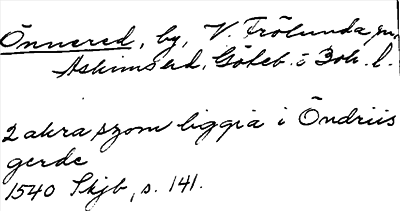 Önnered, by, V. Frölunda sn,
Askims hd. Göteb. o. Boh. l.
2 akra szom liggia i Öndriis
gerde
1540 Skjb, s. 141.